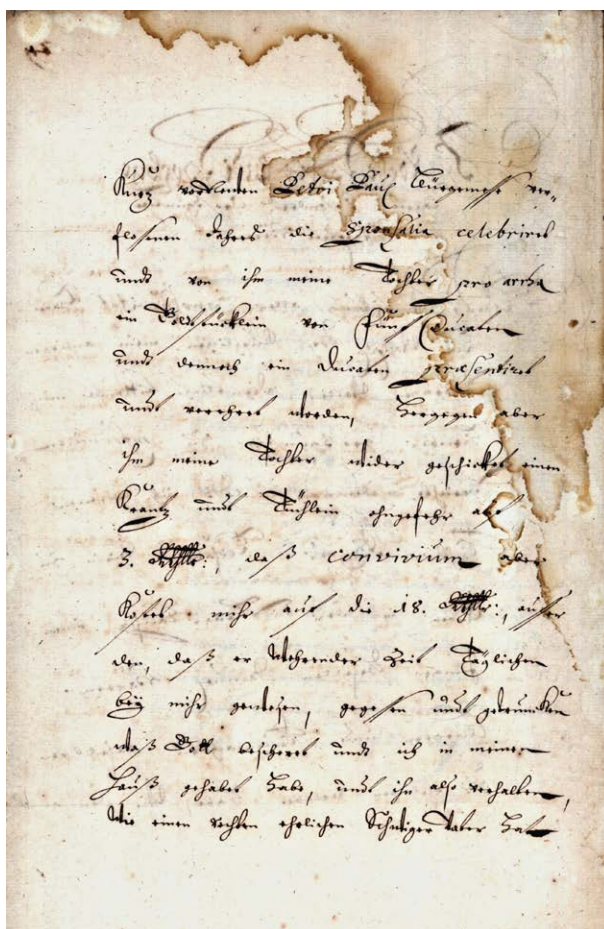 Kurtz Petri Pauli Bürgermeister ver-
flossenen Jahres die Sponsalia celebriret
undt von ihm meine Tochter pro arrha
ein Goldstücklein von Fünf Ducaten
undt dennoch ein Ducaten præsentiret
undt verehret worden, Hergegen aber
ihm meine Tochter wider geschicket einen
Krantz undt Tüchlein ohngefehr auf
3. Rthlr:, daß convivium aber
Kostet mihr auf die 18. Rthlr:, auser
den, daß er wehrender Zeit Täglichen
bey mihr gewesen, gegessen undt getruncken
waß Gott bescheret undt ich in meinen
Hauß gehabet habe, undt ihn also verhalten,
wie einen rechten ehrlichen Schwiger Vater